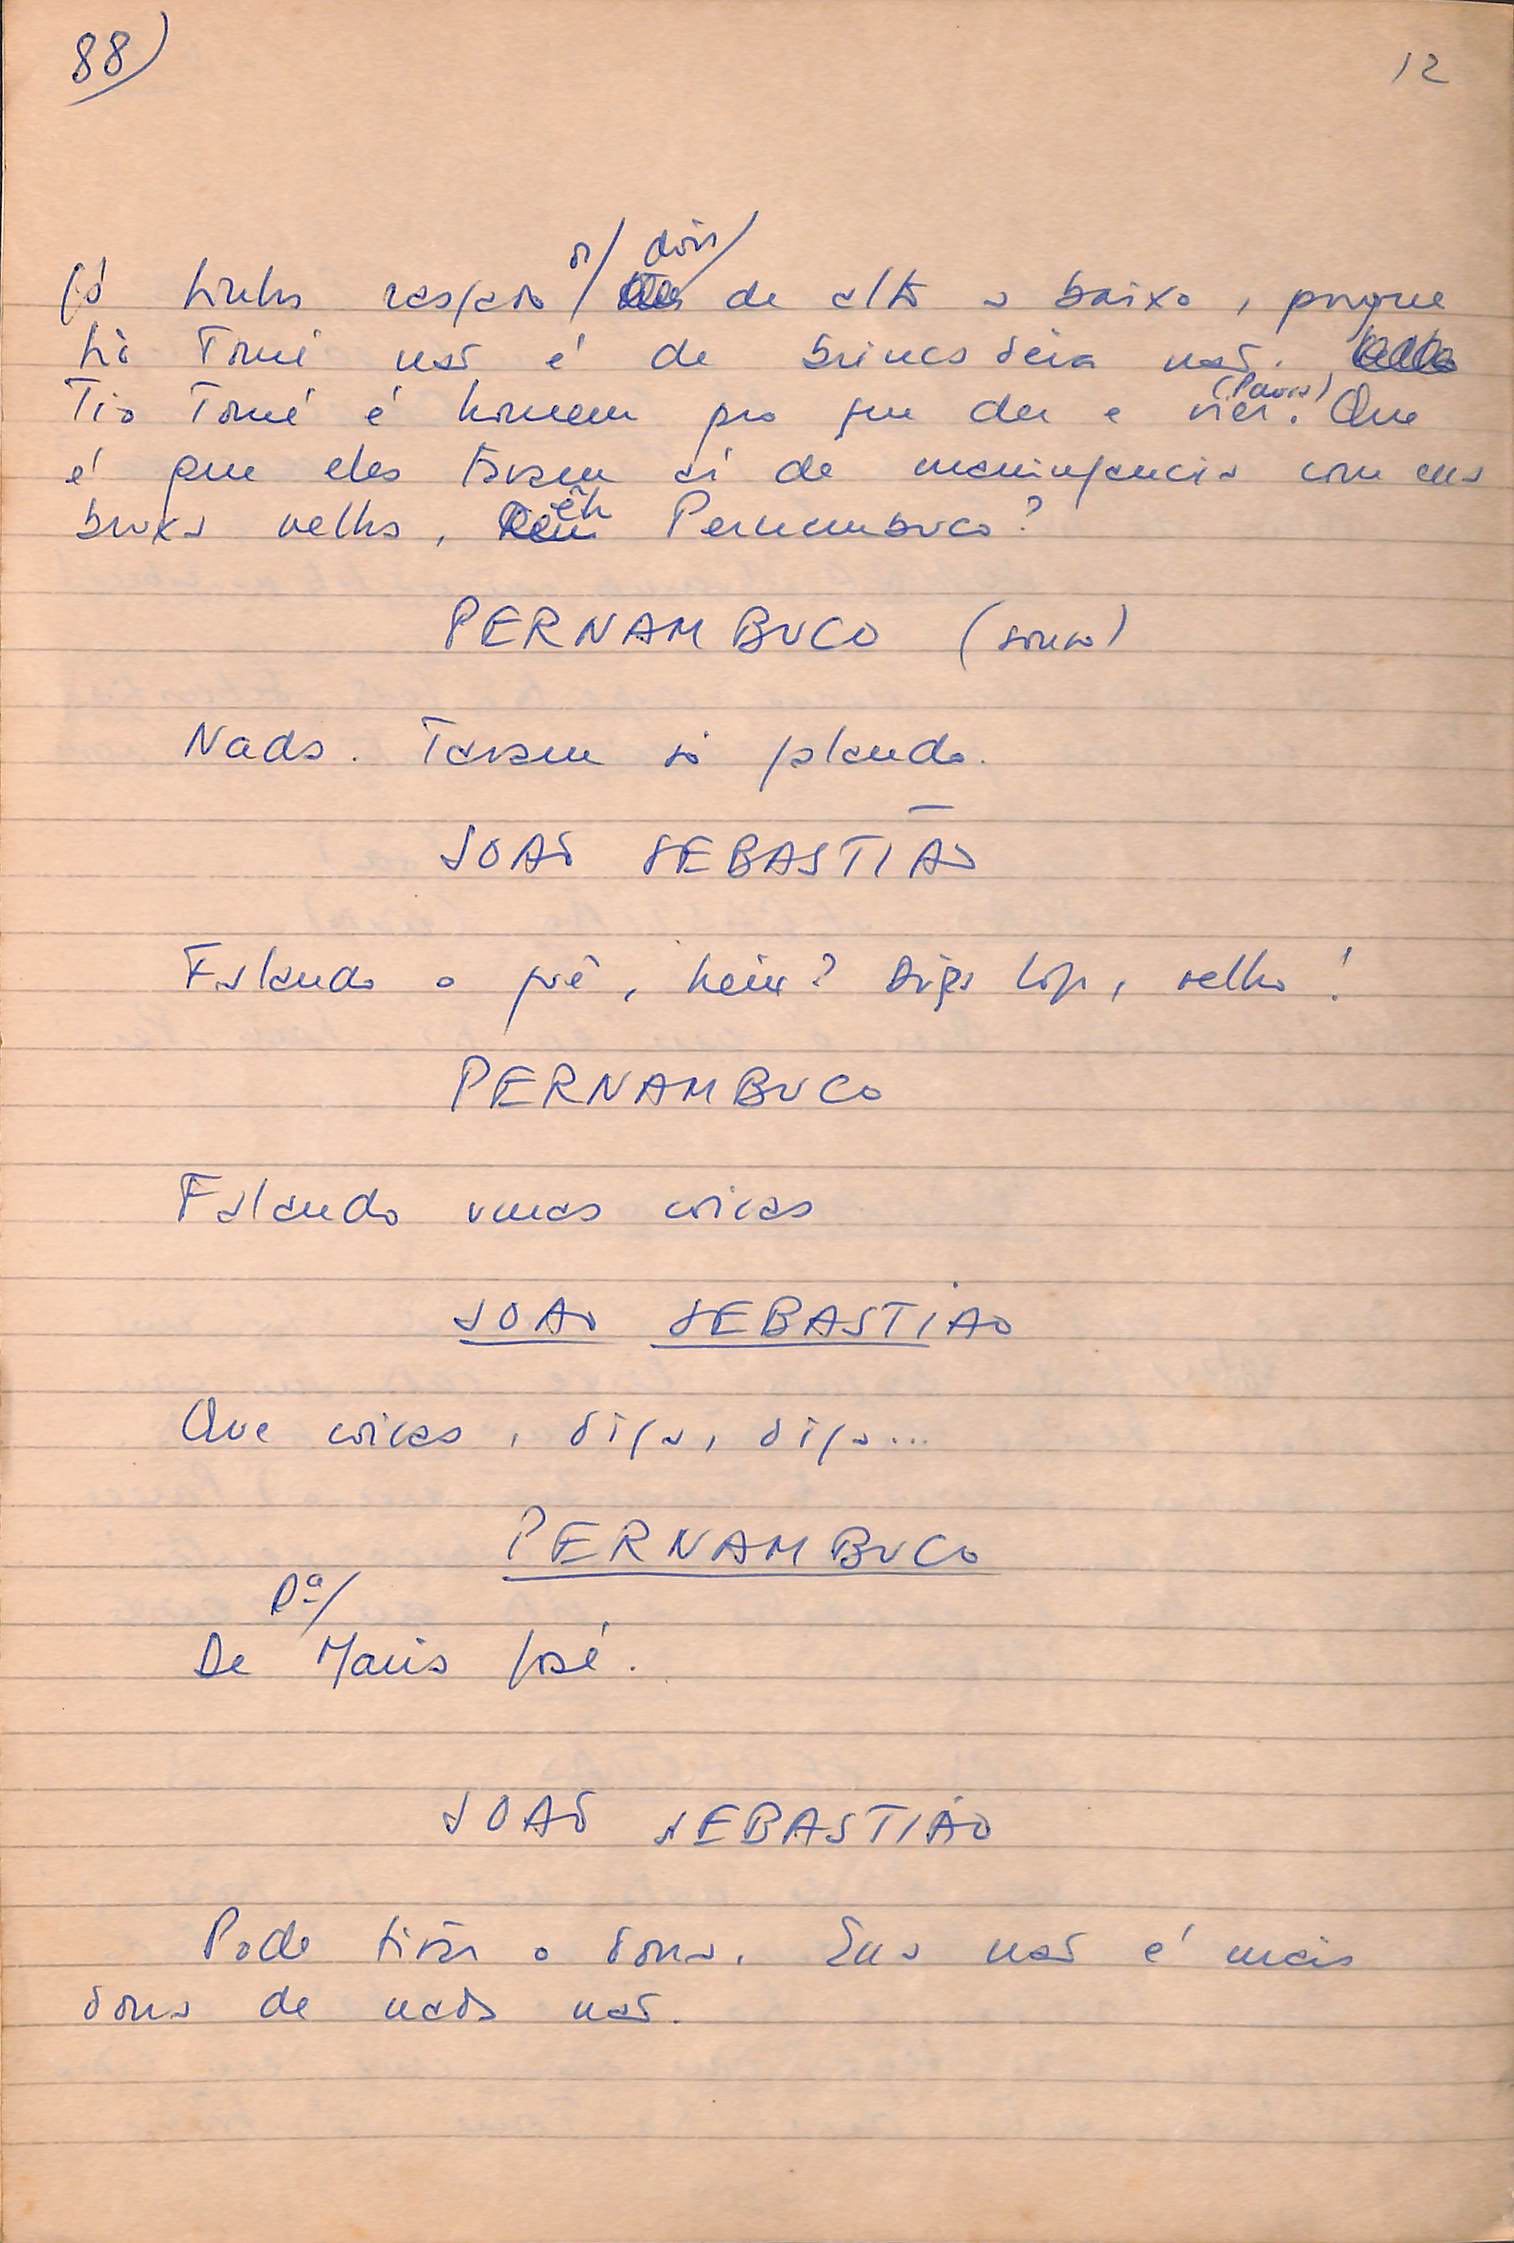 88)
12
já tinha rasgado os dois de alto a baixo, porque
tio Tomé não é de brincadeira não.
Tio Tomé é homem pro que der e vier. (Pausa) Que
é que eles tavam aí de maningancia com essa
bruxa velha, êh Pernambuco?
PERNAMBUCO (sonso)
Nada. Tavam só falando.
JOÃO SEBASTIÃO
Falando o quê, hein? Diga logo, velho!
PERNAMBUCO
Falando umas coisas
JOAO SEBASTIAO
Que coisas, diga, diga...
PERNAMBUCO
De Dª Maria José.
JOÃO SEBASTIÃO
Pode tirar o dona. Ela não é mais
dona de nada não.